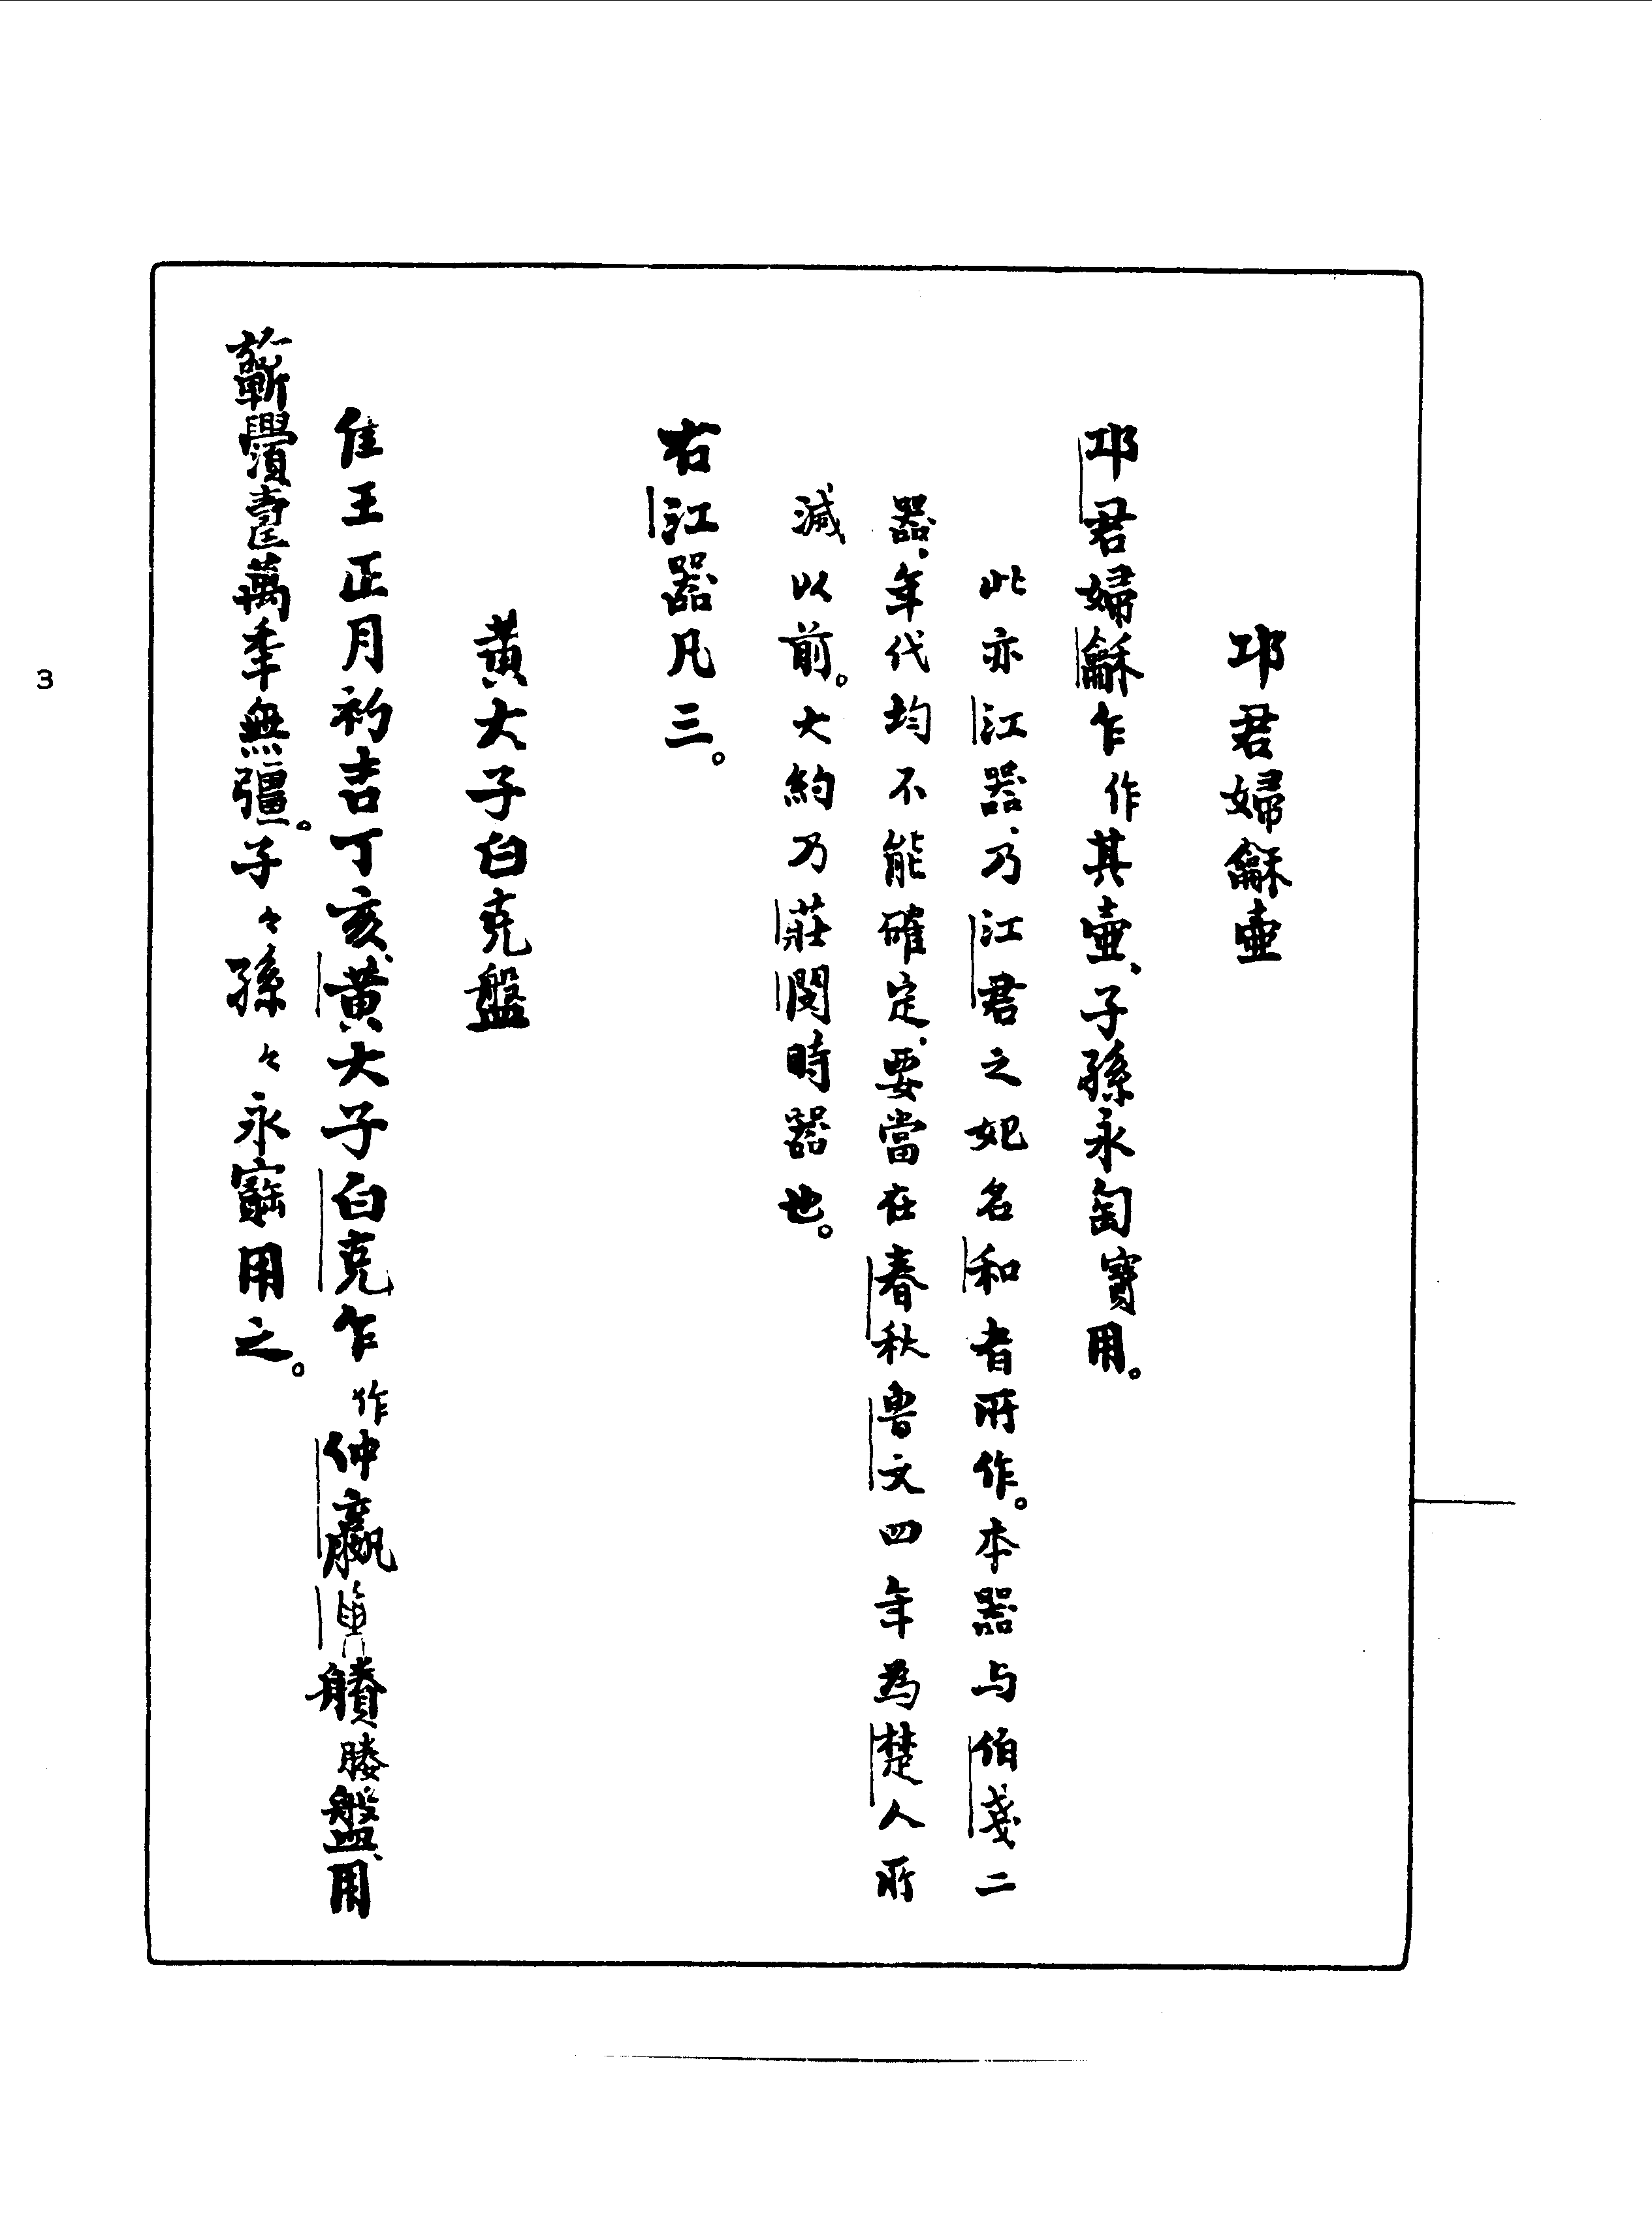 邛君婦龢壺
邛君婦龢乍作其壺、子孫永匋寶用。
此亦江器、乃江君之妃名和者所作。本器与伯戔二
器、年代均不能確定、要當在春秋魯文四年為楚人所
滅以前。大約乃莊閔時器也。
右江器凡三。
黃大子白克盤
隹王正月初吉丁亥、黃大子白克乍作仲嬴媵盤、用
蘄萬年無彊。子々孫々永寶用之。
3